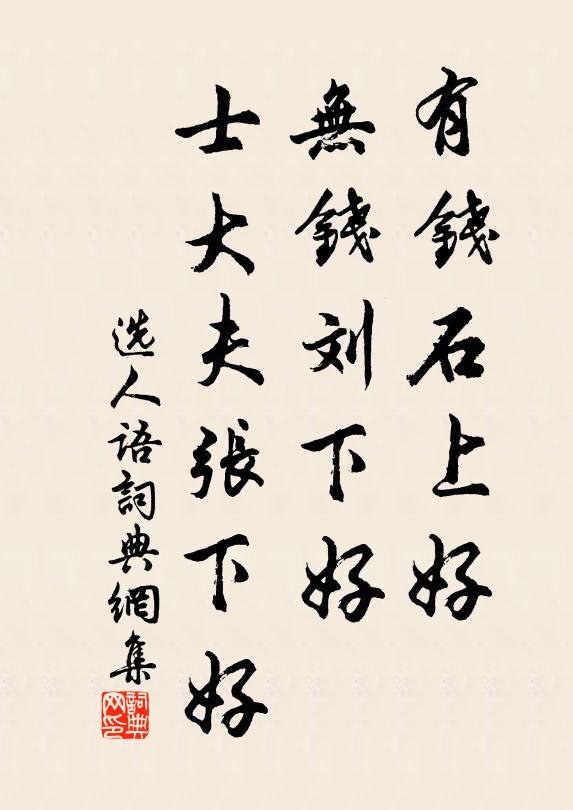 有錢石上好
無錢刘下好
士大夫張下好
选人语詞典網集
詞典
网印